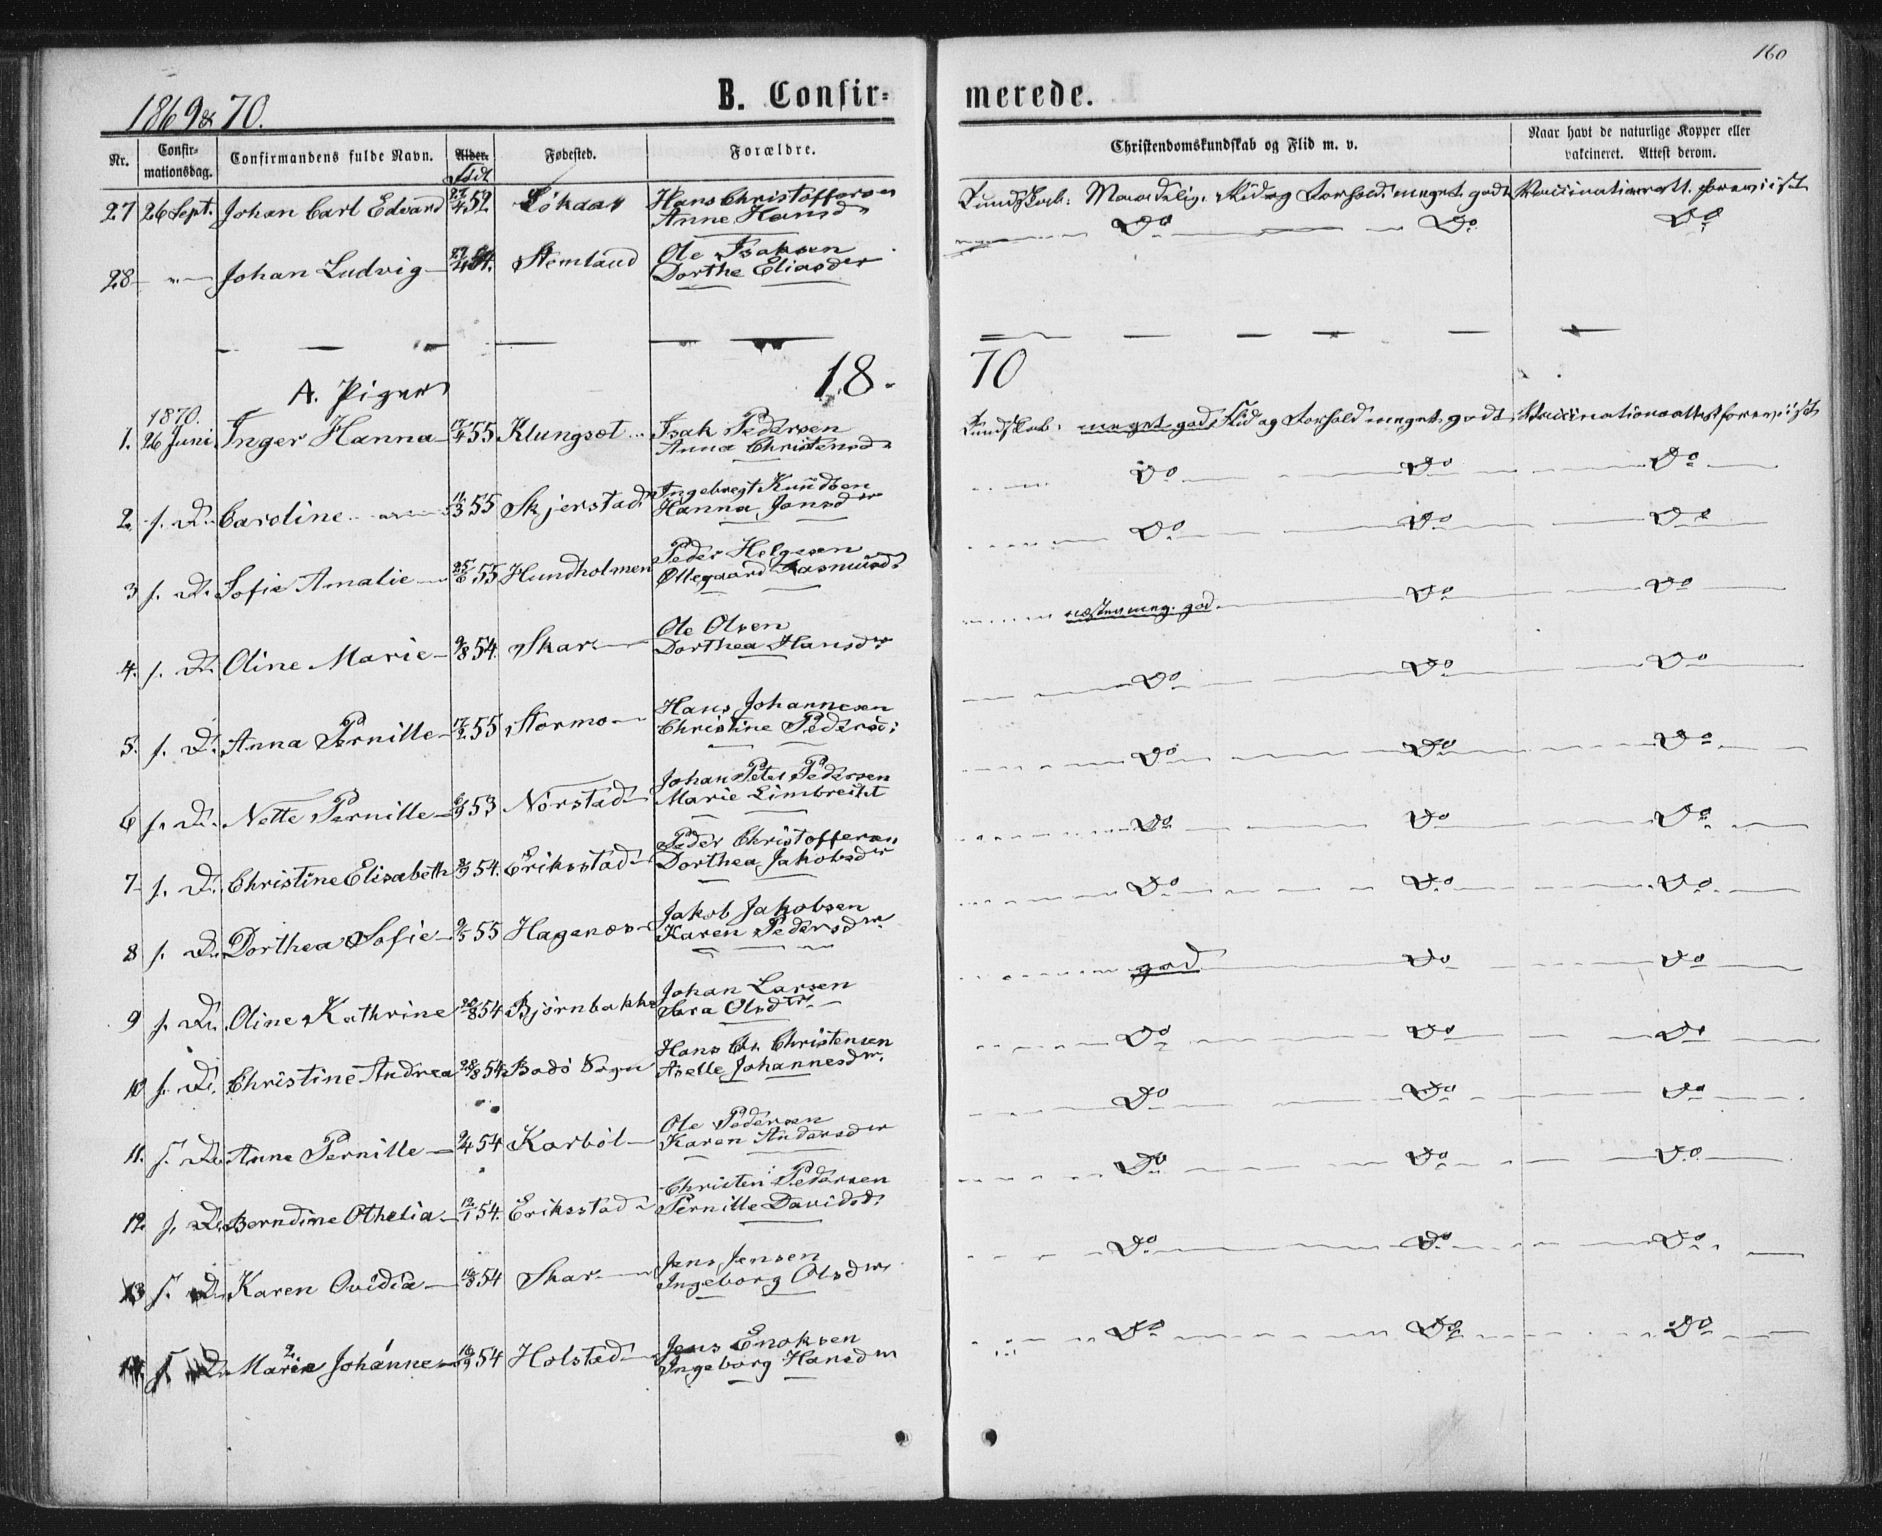 160
1869 & 70.
B. Confirmerede.
Nr. Confirmationsdag. Confirmandens fulde Navn. Alder. Fødested. Forældre. Christendomskundskab og Flid m. v. Naar havt de naturlige Kopper eller vakcineret. Attest derom.
Født
27 26 Sept. Johan Carl Edvard 27/4 52 Løkaas Hans Christoffersen Kundskab: Maadelig. Flid og Forhold: meget godt Vaccinationsatt. foreviist
Anne Hansd Do Do Do
28 Johan Ludvig Stemland Ole Isaksen
Dorthe Eliasdr
1870
A. Piger
1870.
1. 26 Juni Inger Hanna 17/4 55 Klungset Isak Pedersen Kundskab: meget god, Flid og Forhold meget godt, Vaccinationsattest forevist
Anna Christensd
2. s. D. Caroline 11/3 55 Skjerstad Ingebregt Knudsen Do Do Do
Hanna Jonsdr
3 s. D. Sofie Amalie 25/6 55 Hundholmen Peder Helgesen Do Do Do
Ollegaard Rasmusd
4. s. D. Oline Marie 9/8 54. Skar Ole Olsen næsten meg. god. Do Do
Dorthea Hansdr
5. s. D. Anna Pernille 17/2 55 Stormo Hans Johannesen Do Do Do
Christine Pedersd
6 s. D. Nette Pernille 6/9 53 Norstad Johan Peter Pedersen Do Do Do
Marie Limbreitet
7 s. D. Christine Elisabeth 54. Eriksstad Peder Christoffersen Do Do Do
Dorthea Jakobsdr
8 s. D. Dorthea Sofie 9/5 55 Hagenes Jakob Jakobsen Do Do Do
Karen Pedersdr
9 s. D. Oline Kathrine 20/8 54 Bjørnbakke Johan Larsen god Do Do
Sara Olsdr
10 s. D. Christine Andrea 28/8 54 Bodø Sogn Hans Chr. Christensen Do Do Do
Axelle Johannesdr.
11. s. D. Anne Pernille 9/4 54 Karbøl Ole Pedersen Do Do Do
Karen Andersdr
12. s. D. Berndine Othelia 12/1 54. Eriksstad Christen Pedersen Do Do Do
Pernille Davidsd
13 s. D. Karen Ovidia 16/8 54 Skar Jens Jensen Do Do Do
Ingeborg Olsdr
14 s. D. Marie Johanne 16/9 54 Holstad Jens Enoksen Do Do Do
Ingeborg Hansdr